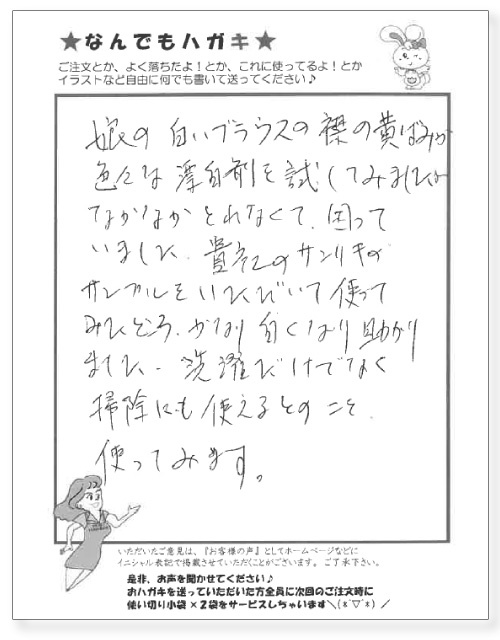 ★なんでもハガキ★
ご注文とか、よく落ちたよ！とか、これに使ってるよ！とか
イラストなど自由に何でも書いて送ってください♪
娘の白いブラウスの襟の黄ばみが
色々な漂白剤を試してみましたが
なかなかとれなくて、困って
いました、貴社のサンリキの
サンプルをいただいて使って
みたところ、かなり白くなり助かり
ました、洗濯だけでなく
掃除にも使えるとのこと、
使ってみます。
いただいたご意見は、『お客様の声』としてホームページなどに
イニシャル表記で掲載させていただくことがございます。ご了承下さい。
是非、お声を聞かせてください♪
おハガキを送っていただいた方全員に次回のご注文時に
使い切り小袋×2袋をサービスしちゃいます＼(*´▽`*)／